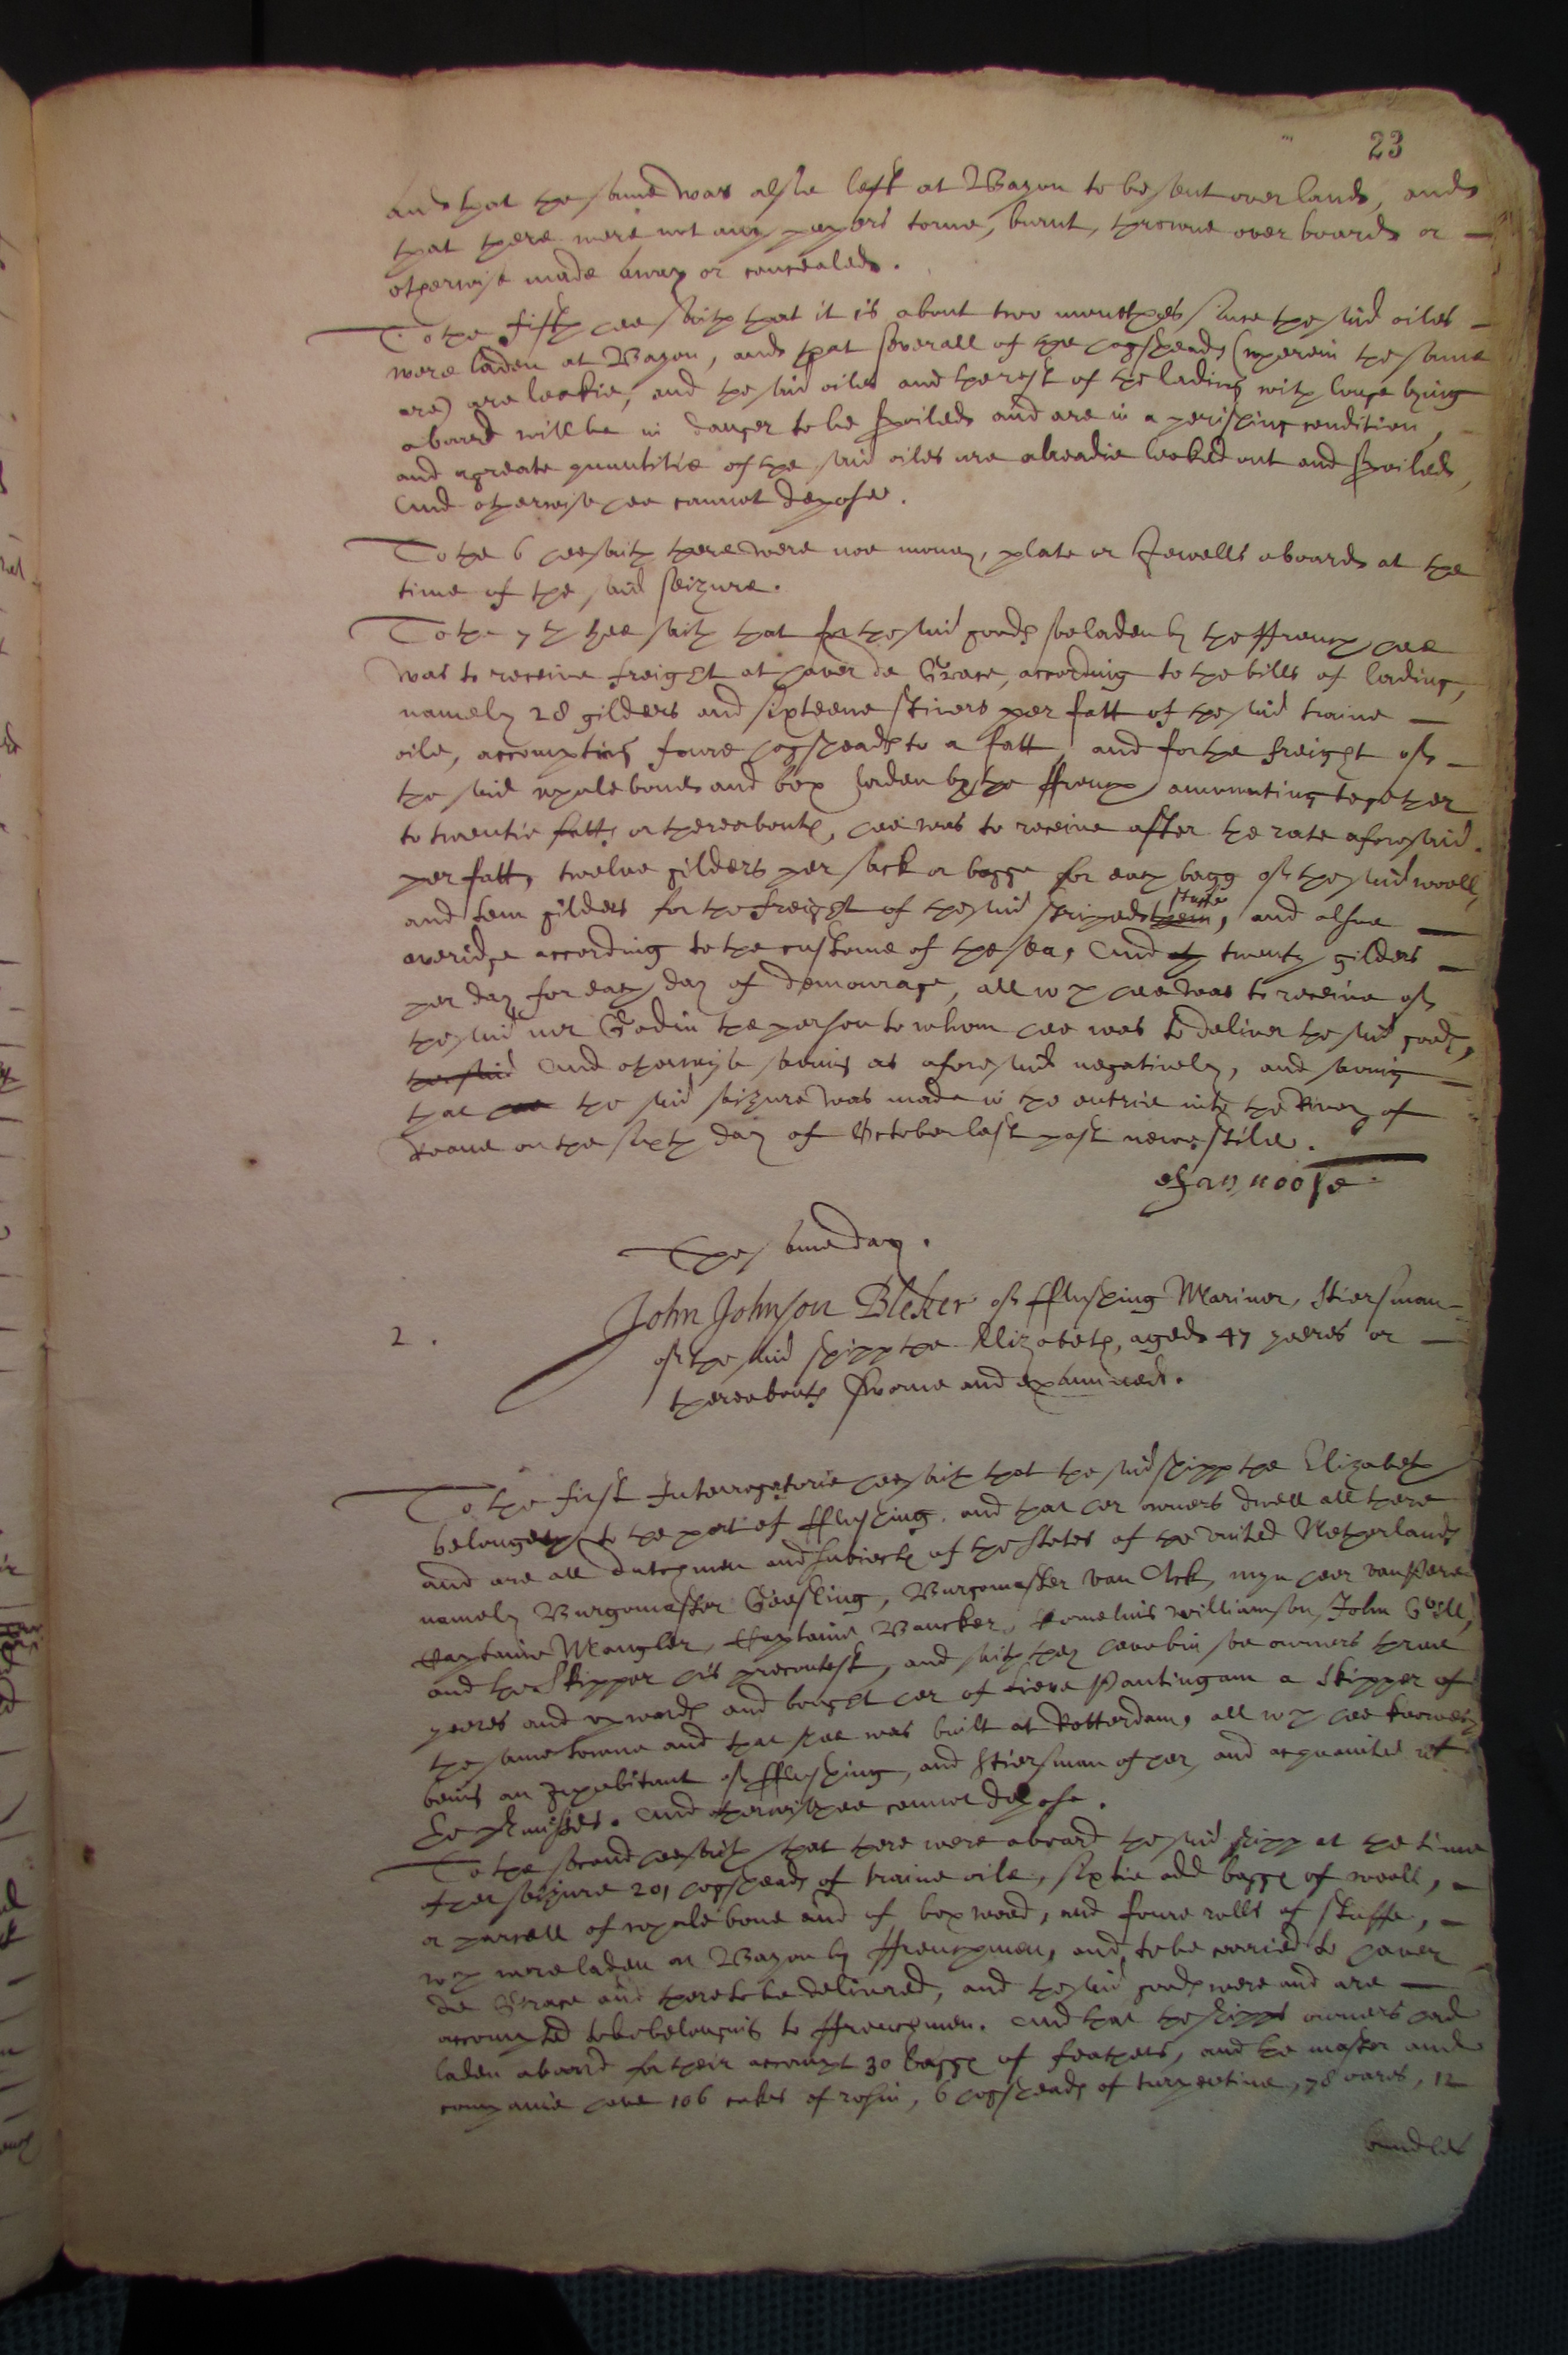 23
and that the same was alsoe left at Bayon to be sent over land, and
that there were not any papers torne, burnt, throwne over board or
otherwise made away or concealed.
To the fifth hee saith that it is about two monethes since the said oiles
were laden at Bayon, and that severall of the hogsheads (wherein the same
are) are leakie, and the said oiles and the rest of the lading with longe lying
aboard will be in danger to be spoiled and are in a perishing condition,
and a greate quantitie of the said oiles are alreadie leaked out and spoiled,
And otherwise hee cannot depose.
To the 6 hee saith there were noe money, plate or Jewells aboard at the
time of the said seizure.
To the 7th hee saith that for the said goods soe laden by the ffrench hee
was to receive freight at haver de Grace, according to the bills of lading,
namely 28 gilders and sixteene stivers per fatt of the said traine
oile, accompting foure hogsheads to a fatt, and for the freight of
the said whale bone and box laden by the ffrench amounting together
to twentie fatts or thereabouts, hee was to receive after the rate aforesaid
per fatt, twelve gilders per sack or bagge for each bagg of the said wooll,
and tenn gilders for the freight of the said striped stuffe, and alsoe
averidge according to the custome of the sea, And twenty gilders
per day for each day of demourage, all wch hee was to receive of
the said mr Godin the person to whom hee was to deliver the said goods,
the said And otherwise saving as aforesaid negatively, and saving
that hee the said seizure was made in the entrie into the River of
Roane on the sixth day of October last past new stile.
Jan noose
The same day.
2.
John Johnson Bleker of fflushing Mariner, Stiersman
of the said shipp the Elizabeth, aged 47 yeeres or
thereabouts sworne and examined.
To the first Interrogatorie hee saith that the said shipp the Elizabeth
belongeth to the port of fflushing, and that her owners dwell all there
and are all dutchmen and subiects of the States of the United Netherlands
namely Burgomaster Geesling, Burgomaster van Ack, myn heer van Pere
Captaine Mangler, Captaine Bancker, Cornelius williamson, John Gill,
and the Skipper his precontest, and saith they have bin soe owners three
yeeres and upwards and bought her of Lieve Pantingam a Skipper of
the same towne and that shee was built at Rotterdam, all wch hee knoweth
being an Inhabitant of fflushing, and Stiersman of her, and acquainted wt
the premisses. And otherwise hee cannot depose.
To the second hee saith that there were aboard the said shipp at the time
of her seizure 201 hogsheads of traine oile, sixtie odd baggs of wooll,
a parcell of whale bone and of box wood, and foure rolls of stuffe,
wch were laden at Bayon by ffrenchmen, and to be carried to haver
de Grace and there to be delivered, and the said goods were and are
accompted to be belonging to ffrenchmen. And that the shipps owners had
laden aboard for their accompt 30 baggs of feathers, and the master and
companie have 106 cakes of rosin, 6 hogsheads of turpentine, 78 oares, 12
bundles